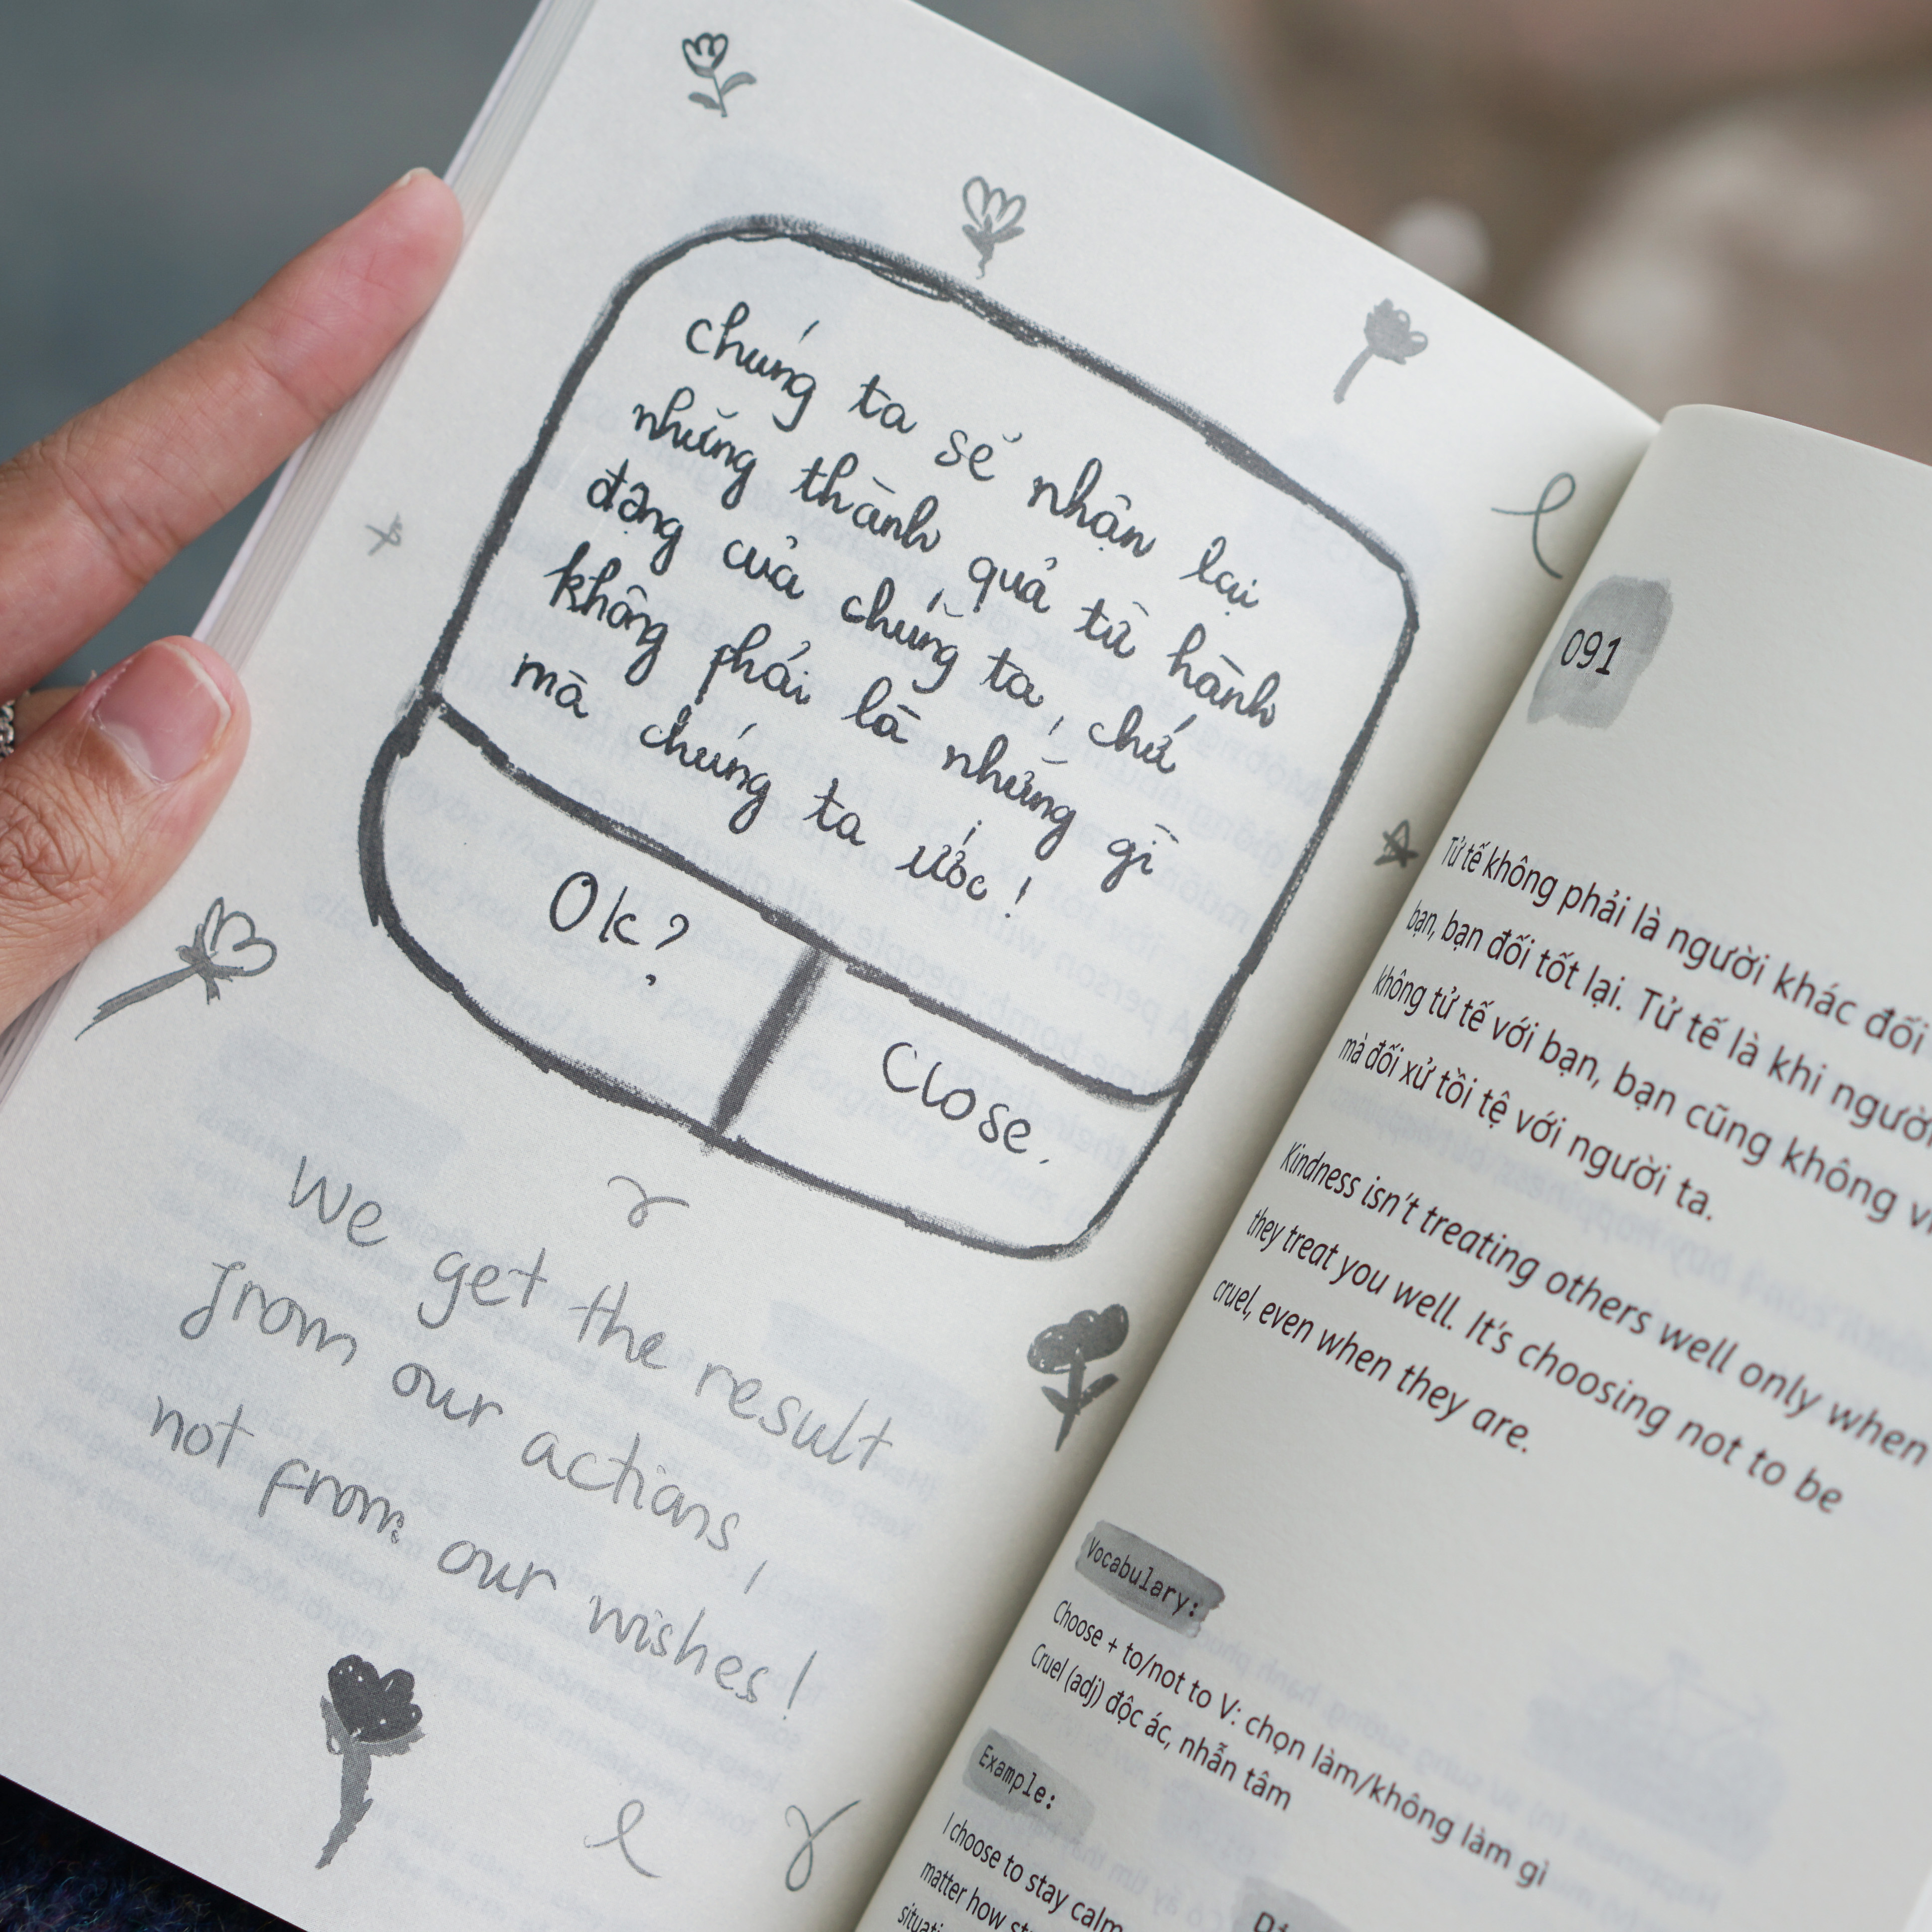 Chúng ta sẽ nhận lại
những thành quả từ hành
động của chúng ta, chứ
không phải là những gì
mà chúng ta ước!
Ok?
Close.
We get the result
from our actions,
not from our wishes!
091
Tử tế không phải là người khác đối
bạn, bạn đối tốt lại. Tử tế là khi người
không tử tế với bạn, bạn cũng không
mà đối xử tồi tệ với người ta.
Kindness isn't treating others well only when
they treat you well. It's choosing not to be
cruel, even when they are.
Vocabulary:
Choose + to/not to V: chọn làm/không làm gì
Cruel (adj) độc ác, nhẫn tâm
Example:
I choose to stay calm
matter how